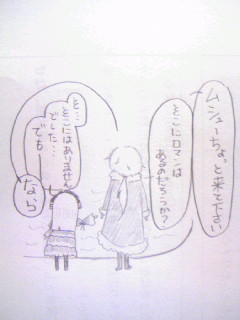 ムシューちょっと来て下さい
そこにロマンは
あるのだろうか?
そ…
そこにはありません
でした…
でも
なら